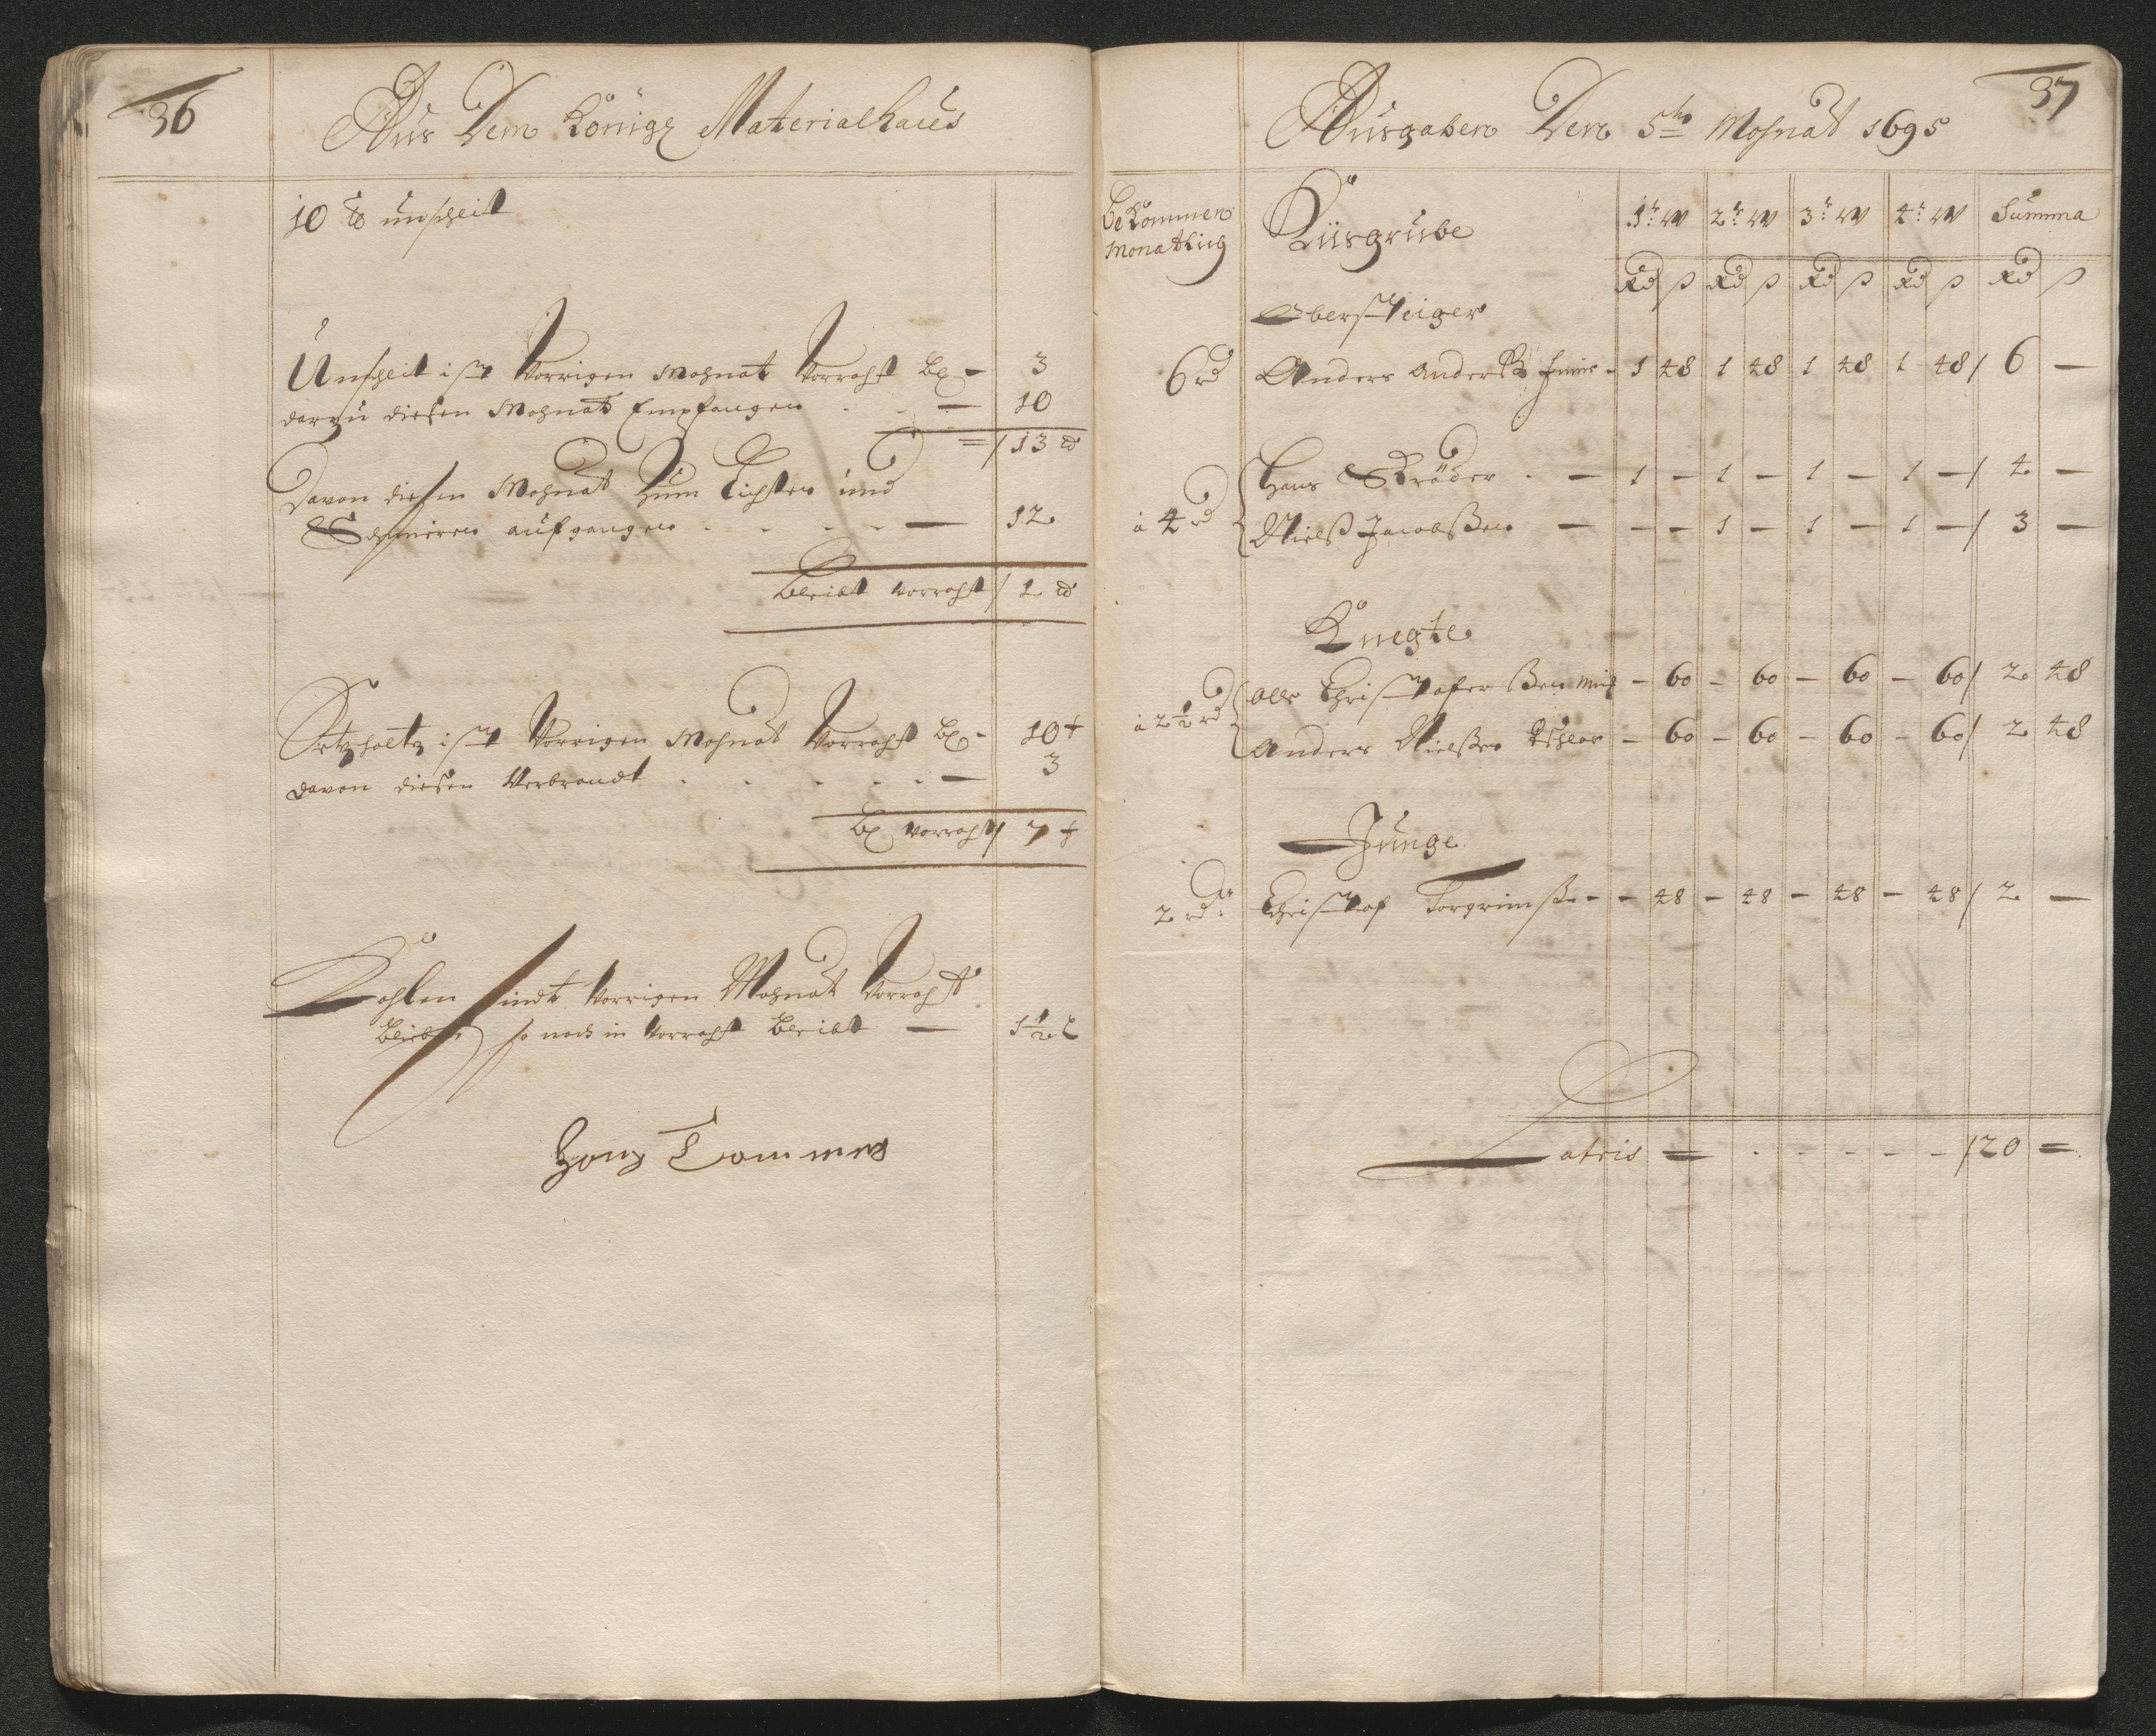 36
Aus Dem Königl Materialhaus
10 ℔ unscheit
Unscheit ist Vorrigen Mohnat Vorraht bl – 3
darzu diesen Mohnat Empfangen . . — 10
= / 13 ℔
Davon diesen Mohnat Zum Lichten und
Schmiren aufgangen . . . . — 12
bleibt vorraht / 1 ℔
Setzholtz ist Vorrigen Mohnat Vorraht bl – 10 f
davon diesen Verbrandt . . . . . . — 3
bl vorraht / 7 f
Kohlen sindt Vorrigen Mohnat Vorraht
blieben so noch in Vorraht bleibt — 1½ L
37
Ausgaben Den 5ten Mohnat 1695
bekommen Monatlich
Kiisgrube 1r W 2r W 3r W 4r W Summa
Rd ß Rd ß Rd ß Rd ß Rd ß
Obersteiger
6 rd Anders Anderß – 1 48 1 48 1 48 1 48 / 6 —
à 4 rd Hans Ströder . – 1 – 1 – 1 – 1 – / 4 —
Nielß Jacobßen — – – 1 – 1 – 1 – / 3 —
Knegte
à 2½ rd Olle Christofer ßen – 60 – 60 – 60 – 60 / 2 48
Anders Nielßen – 60 – 60 – 60 – 60 / 2 48
Junge
2 rd Christof Torgrimß – – 48 – 48 – 48 – 48 / 2 —
Latris = . . . . – – / 20 =